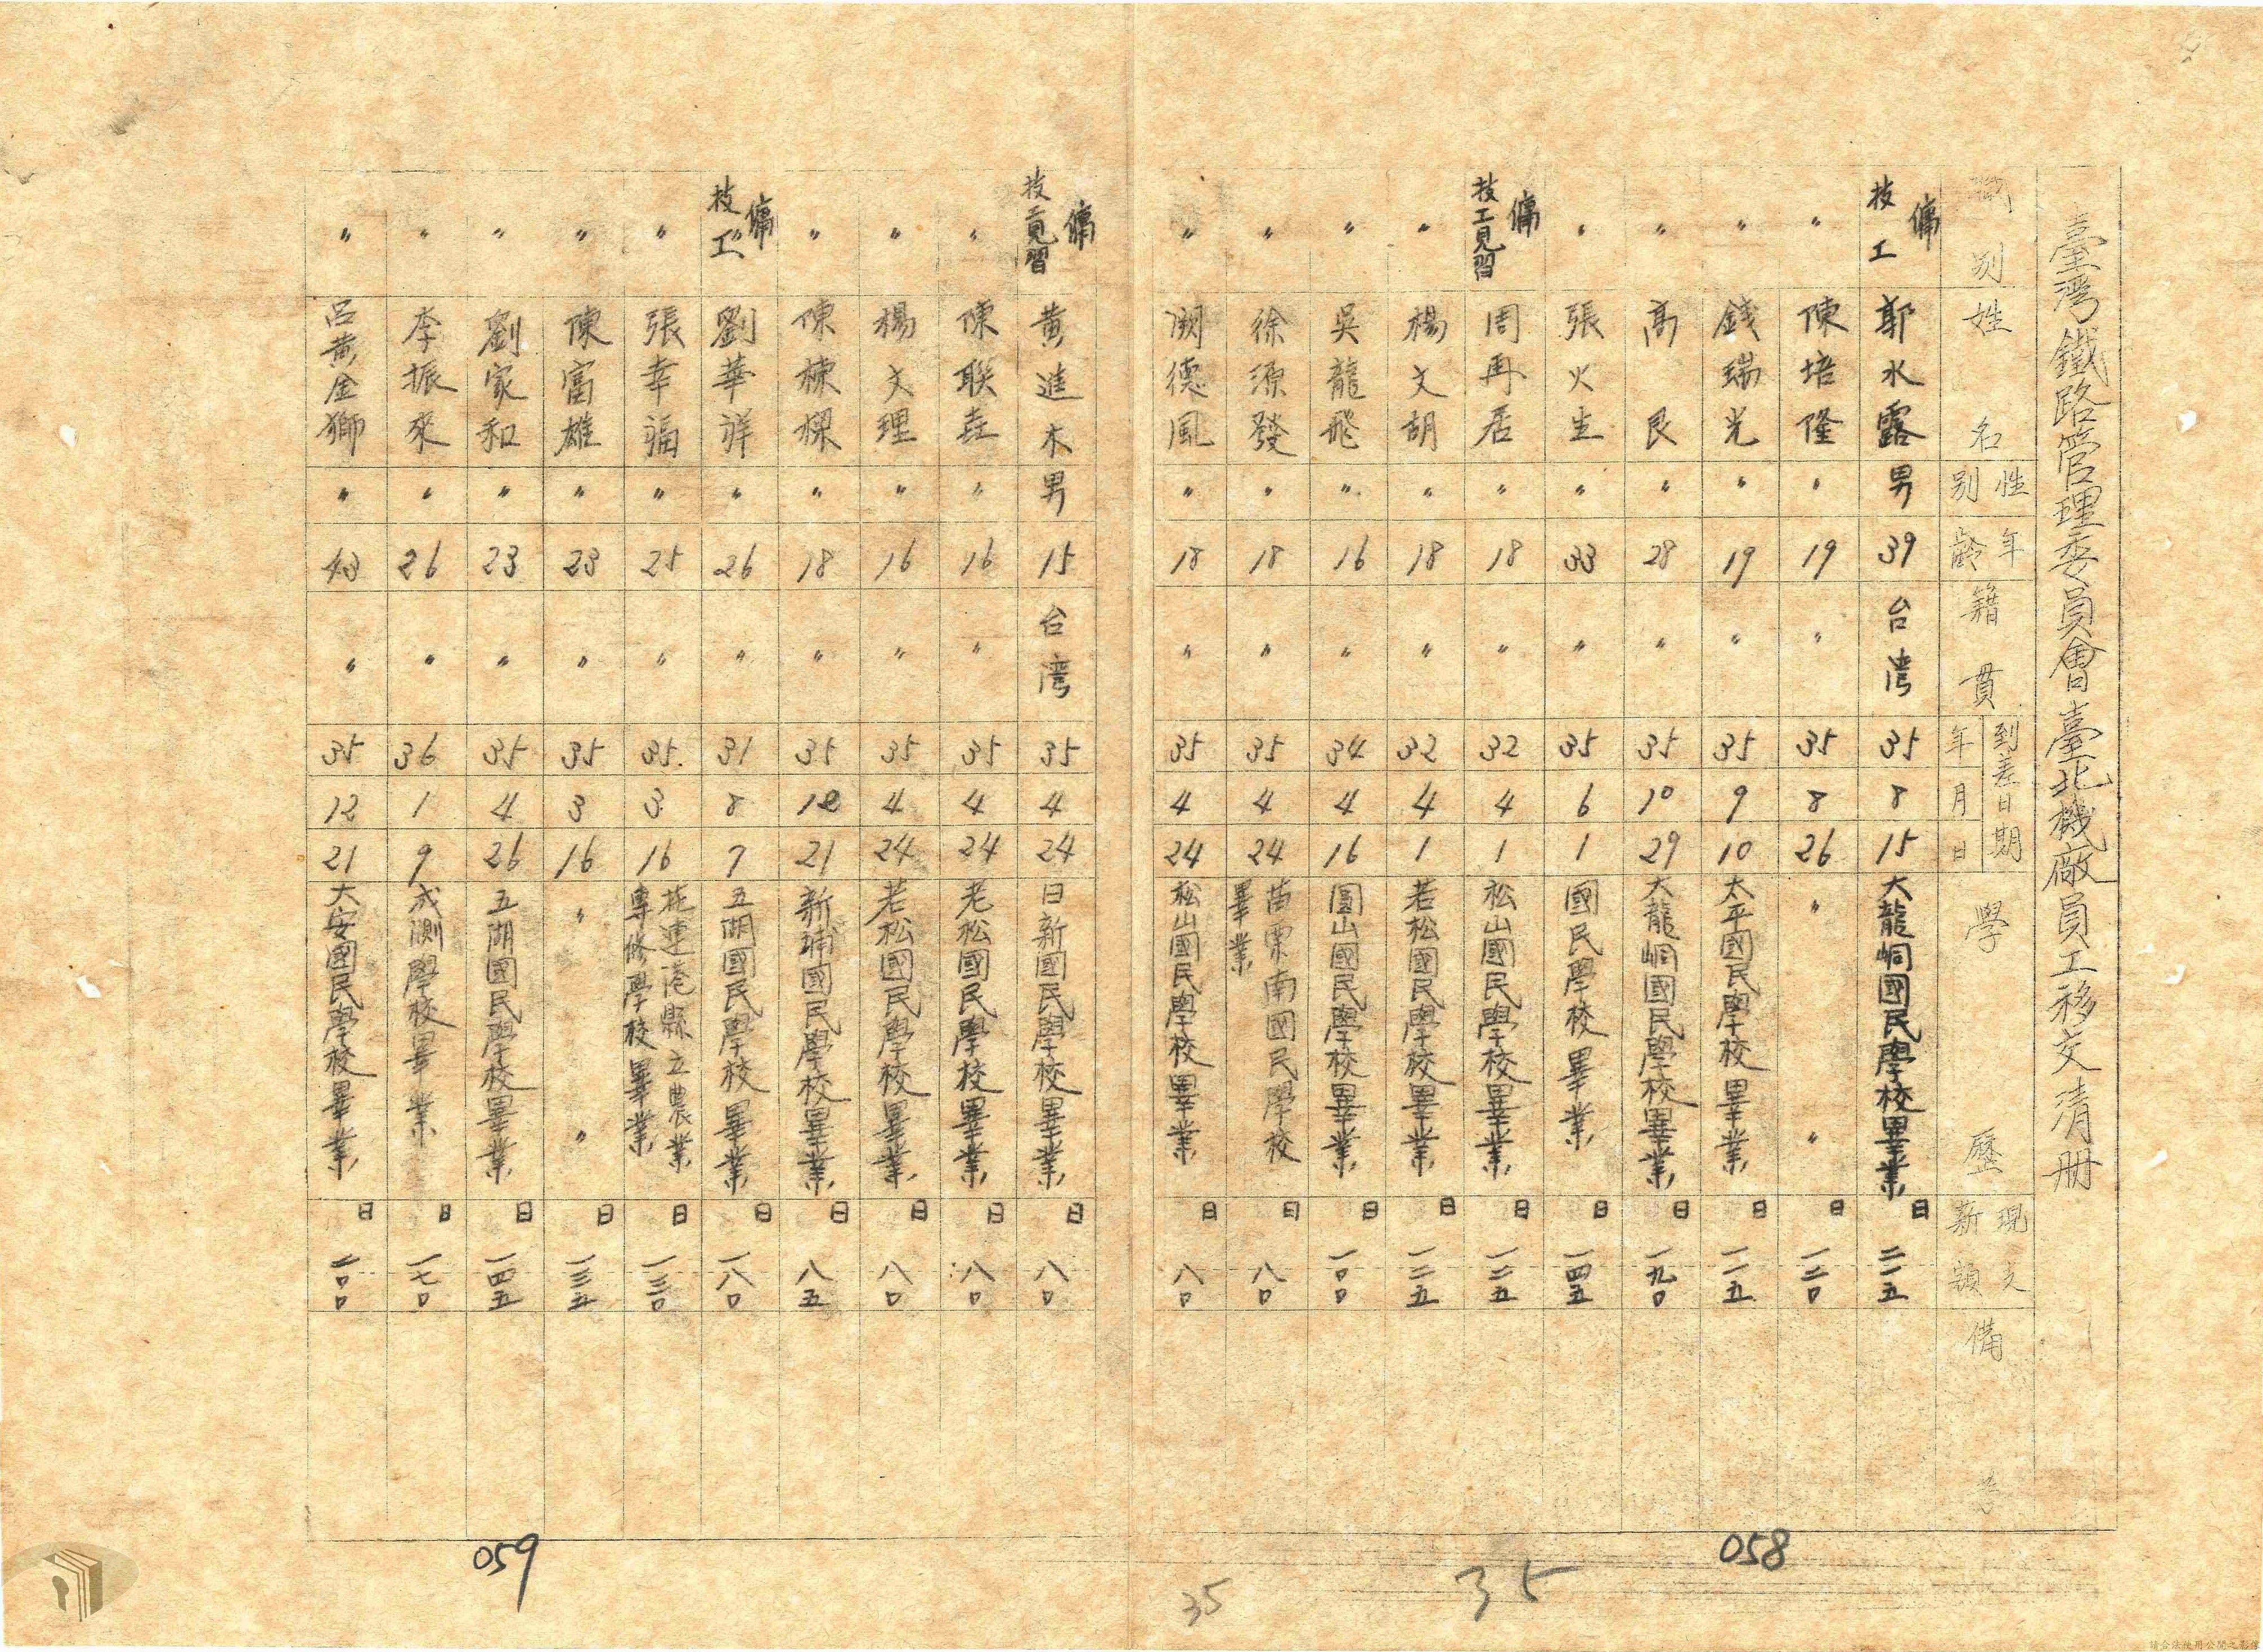 臺灣鐵路管理委員會臺北機廠員工移交清冊
職別 姓名 性別 年齡 籍貫 到差日期 年 月 日 學歷 現支薪額 備考
傭 技工 郭水露 男 39 台湾 35 8 15 大龍峒國民學校畢業 日 二一五
〃 陳培隆 〃 19 〃 35 8 26 〃 〃 日 一二0
〃 錢瑞光 〃 19 〃 35 9 10 太平國民學校畢業 日 一一五
〃 高艮 〃 28 〃 35 10 29 大龍峒國民學校畢業 日 一九0
〃 張火生 〃 33 〃 35 6 1 國民學校畢業 日 一四五
傭 技工見習 周再居 〃 18 〃 32 4 1 松山國民學校畢業 日 一二五
〃 楊文胡 〃 18 〃 32 4 1 若松國民學校畢業 日 一二五
〃 吳龍飛 〃 16 〃 34 4 16 圓山國民學校畢業 日 一00
〃 徐源發 〃 18 〃 35 4 24 苗栗南國民學校畢業 日 八0
〃 闕德風 〃 18 〃 35 4 24 松山國民學校畢業 日 八0
058
35
35
傭 技工見習 黃進木 男 15 台湾 35 4 24 日新國民學校畢業 日 八0
〃 陳联喜 〃 16 〃 35 4 24 老松國民學校畢業 日 八0
〃 楊文理 〃 16 〃 35 4 24 若松國民學校畢業 日 八0
〃 陳棟樑 〃 18 〃 35 12 21 新埔國民學校畢業 日 八五
傭 技工 劉華祥 〃 26 〃 31 8 7 五湖國民學校畢業 日 一八0
〃 張幸福 〃 25 〃 35 3 16 花連港縣立農業專修學校畢業 日 一三0
〃 陳富雄 〃 23 〃 35 3 16 〃 〃 日 一三五
〃 劉家和 〃 23 〃 35 4 26 五湖國民學校畢業 日 一四五
〃 李振來 〃 26 〃 36 1 9 成淵學校畢業 日 一七0
〃 呂黃金獅 〃 43 〃 35 12 21 大安國民學校畢業 日 二00
059